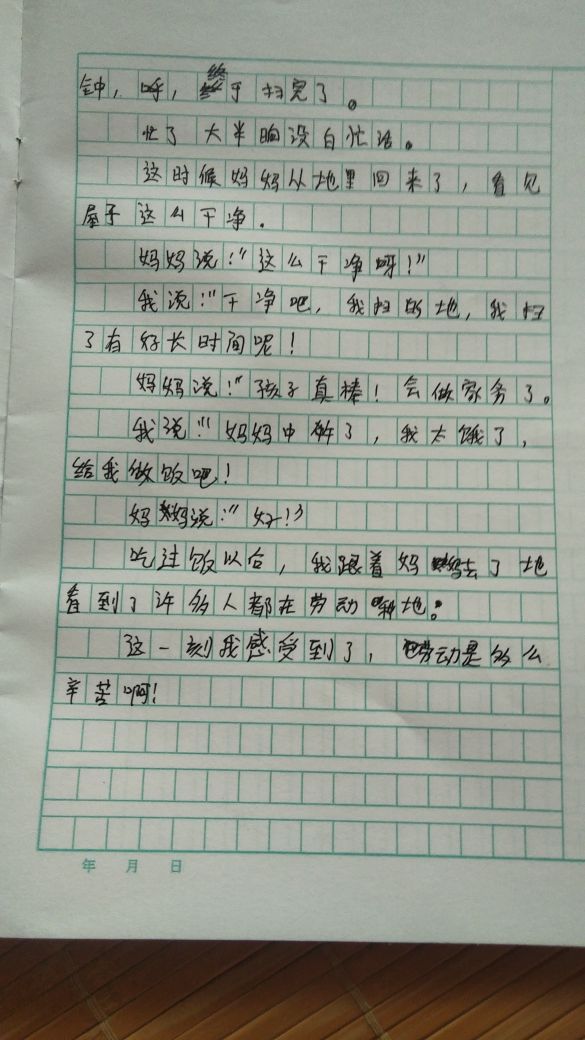 钟，呼，终于扫完了。
忙了大半晌没白忙活。
这时候妈妈从地里回来了，看见
屋子这么干净.
妈妈说:"这么干净呀!"
我说:"干净吧，我扫的地，我扫
了有好长时间呢!
妈妈说:"孩子真棒!会做家务了。
我说:"妈妈中午了，我太饿了，
给我做饭吧!
妈妈说:"好!"
吃过饭以后，我跟着妈妈去了地
看到了许多人都在劳动 地。
这一刻我感受到了，劳动是多么
辛苦啊!
年 月 日